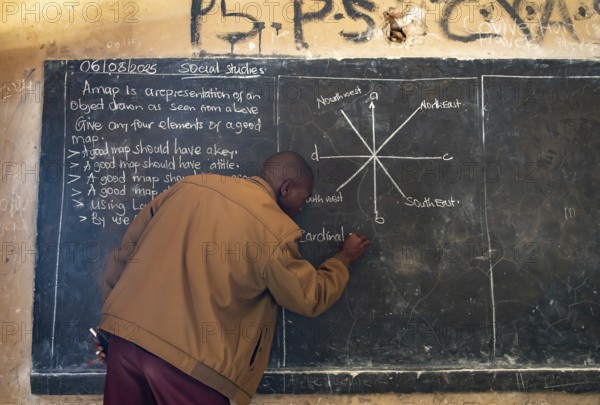 06/08/2025 Social studies
A map is a representation of an
Object drawn as seen from above
Give any four elements of a good
map.
> A good map should have a key.
> A good map should have a title.
> A good map should
> A good map
> Using
> By use
Northwest
a
NorthEast
d
c
South west
South East.
b
Cardinal
m